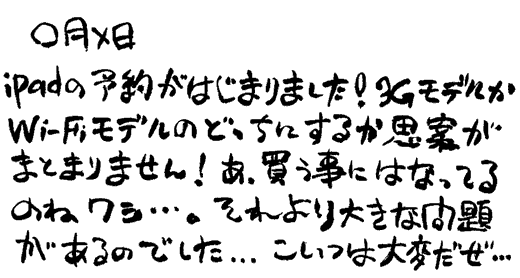 〇月×日
ipadの予約がはじまりました!3Gモデルか
Wi-Fiモデルのどっちにするか思案が
まとまりません!あ、買う事にはなってる
のね、ワシ…。それより大きな問題
があるのでした…こいつは大変だぜ…